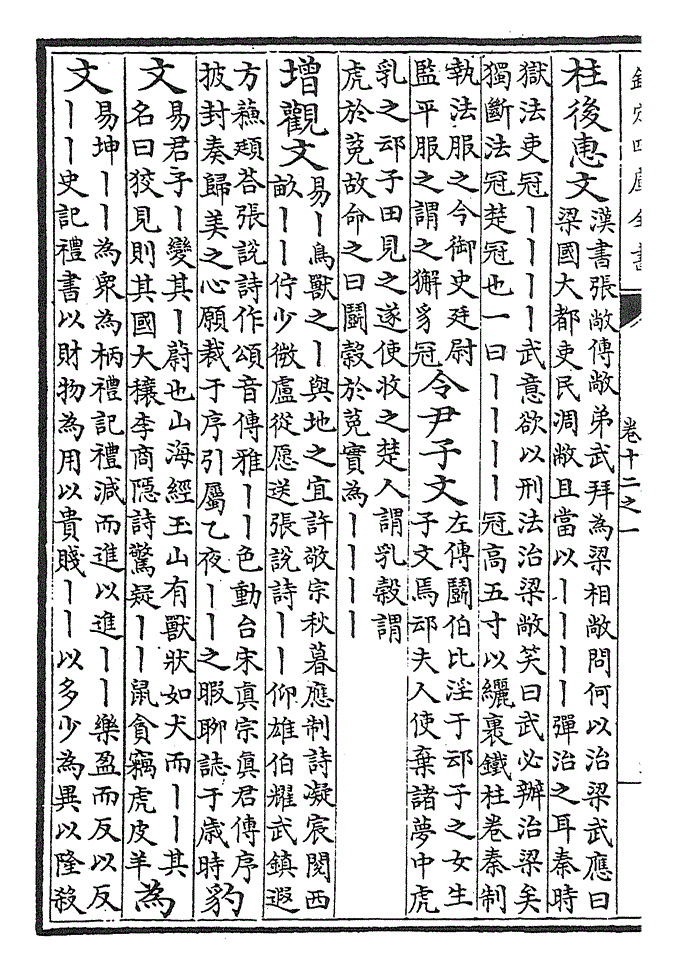 欽定四庫全書
卷十二之一
柱後惠文
漢書張敞傳敞弟武拜為梁相敞問何以治梁武應曰
梁國大都吏民凋敝且當以丨丨丨丨彈治之耳秦時
獄法吏冠丨丨丨丨武意欲以刑法治梁敞笑曰武必辦治梁矣
獨斷法冠楚冠也一曰丨丨丨丨冠高五寸以纚裹鐵柱卷秦制
執法服之今御史廷尉
監平服之謂之獬豸冠
令尹子文
左傳鬬伯比淫于䢵子之女生
子文焉䢵夫人使棄諸夢中虎
乳之䢵子田見之遂使收之楚人謂乳穀謂
虎於菟故命之曰鬬穀於菟實為丨丨丨丨
增觀文
易丨鳥獸之丨與地之宜許敬宗秋暮應制詩凝宸閱西
畝丨丨佇少微盧從愿送張說詩丨丨仰雄伯耀武鎮遐
方蘓頲荅張說詩作頌音傳雅丨丨色動台宋真宗真君傳序
披封奏歸美之心願裁于序引屬乙夜丨丨之暇聊誌于歲時
豹文
易君子丨變其丨蔚也山海經玉山有獸狀如犬而丨丨其
名曰狡見則其國大穰李商隱詩驚疑丨丨鼠貪竊虎皮羊
為文
易坤丨丨為衆為柄禮記禮減而進以進丨丨樂盈而反以反
丨丨史記禮書以財物為用以貴賤丨丨以多少為異以隆殺